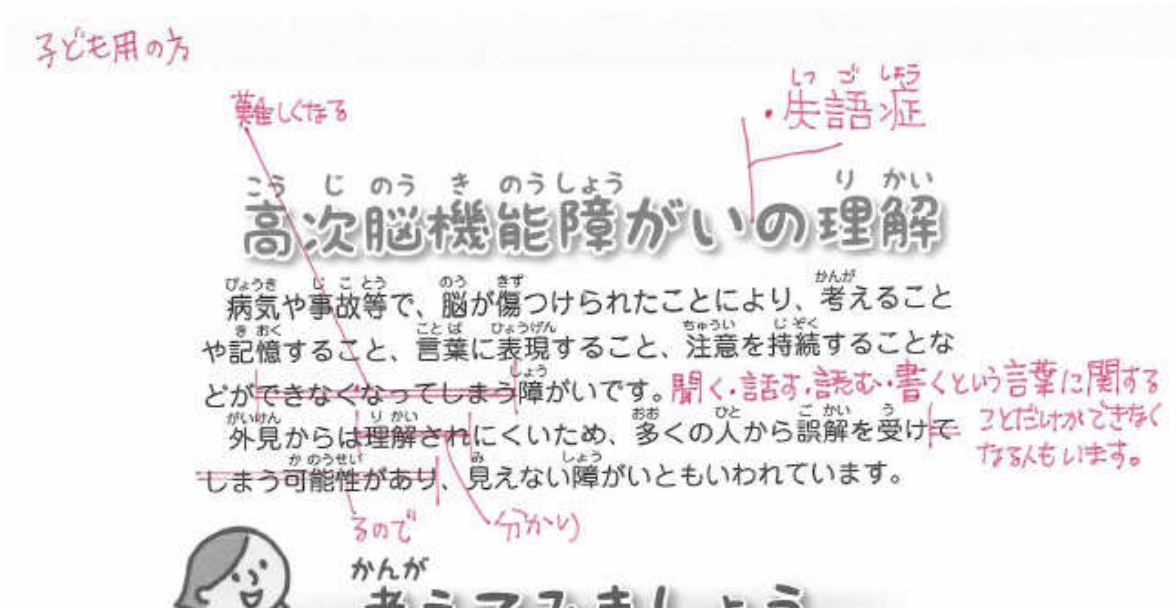 子ども用の方
難しくなる
しつ ご しょう
・失語症
こう じ のう き のう しょう り かい
高次脳機能障がいの理解
びょうき じ こ とう のう きず かんが
病気や事故等で、脳が傷つけられたことにより、考えること
き おく こと ば ひょうげん ちゅうい じ ぞく
や記憶すること、言葉に表現すること、注意を持続することな
しょう
どができなくなってしまう障がいです。聞く・話す・読む・書くという言葉に関する
ことだけができなく
なる人もいます。
がいけん り かい おお ひと ご かい う
外見からは理解されにくいため、多くの人から誤解を受けて
か のうせい み しょう
しまう可能性があり、見えない障がいともいわれています。
るので
分かり
かんが
考えてみましょう